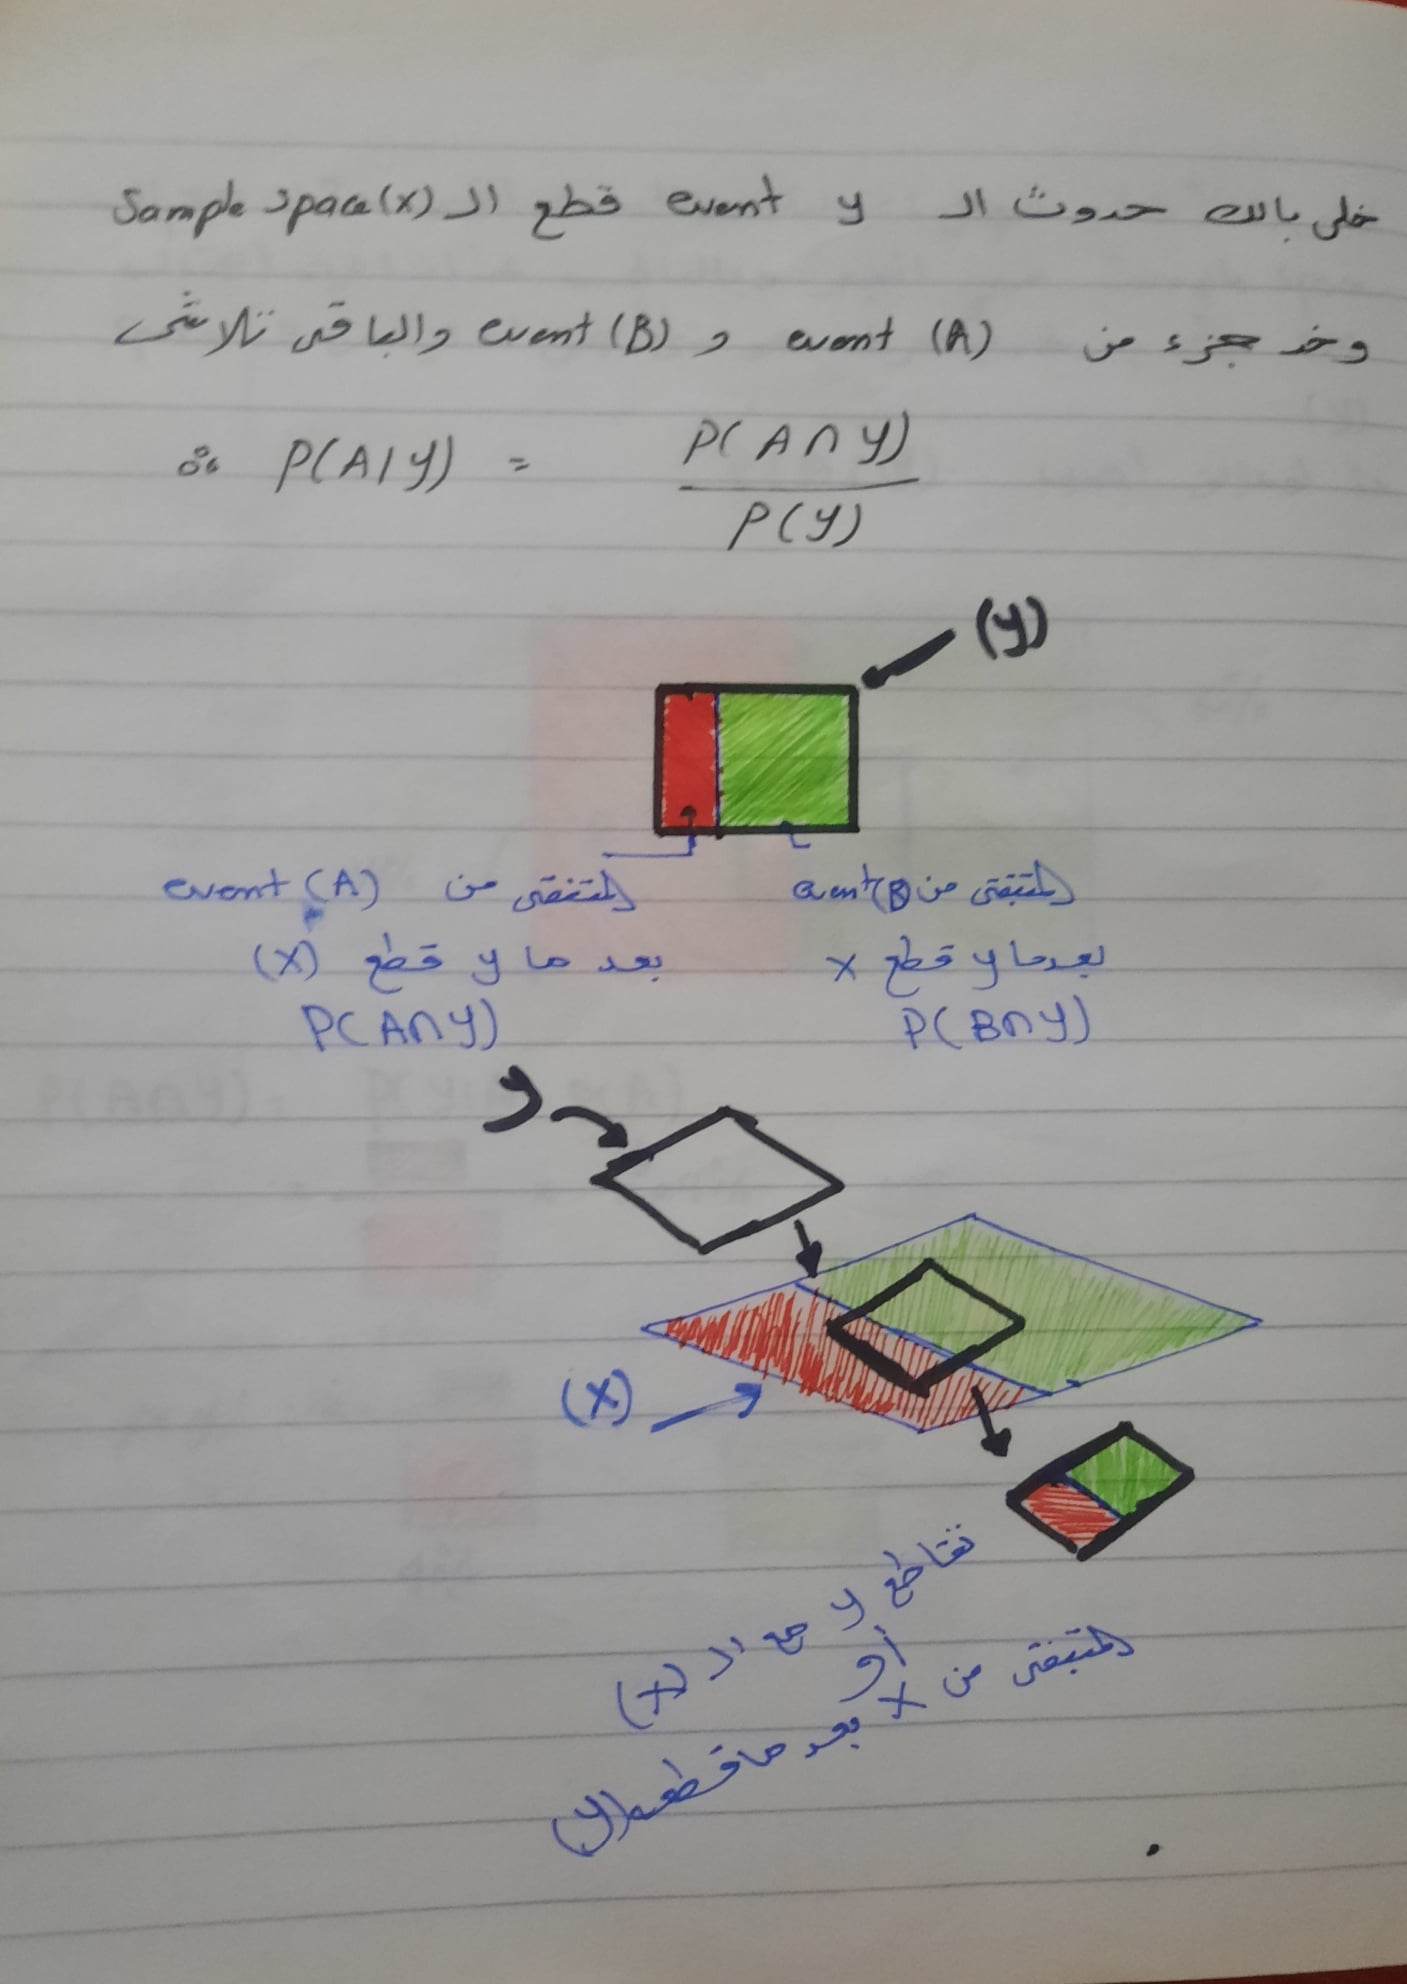 خلى بالك حدوث ال y event قطع ال Sample space(x)
وخد جزء من event (A) و event (B) والباقى تلاشى
∴ P(A|y) = P(A∩y) / P(y)
(y)
المتبقى من event (A)
بعد ما y قطع (x)
P(A∩y)
المتبقى من event(B)
بعد ما y قطع x
P(B∩y)
y
(x)
تقاطع y مع ال (x)
أو
المتبقى من x بعد ما قطعه (y)